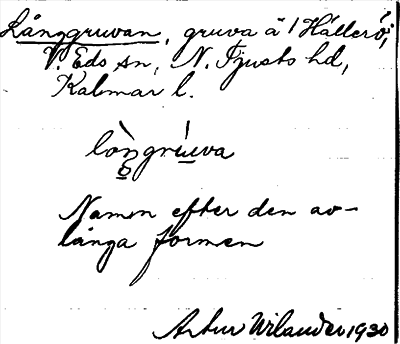 Långgruvan, gruva å Hällerö,
V. Eds sn, N. Tjusts hd,
Kalmar l.
lòngrúuva
Namn efter den av-
långa formen
Artur Wilander 1930